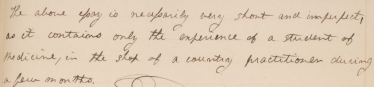 The above essay is necessarily very short and imperfect,
as it contains only the experience of a student of
Medicine, in the shop of a country practitioner during
a few months.